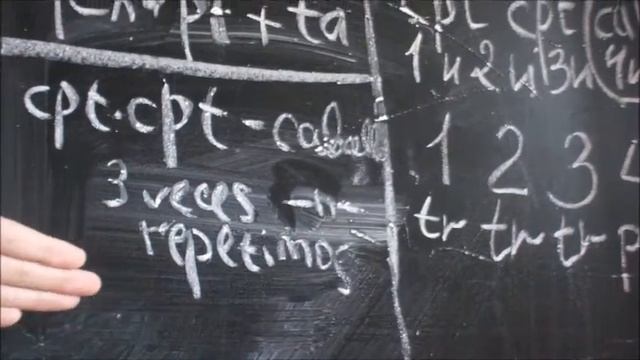 pi + ta
cpt.cpt-
3 veces
repetimos
pt cpt
1n 2n 3n 4n
1 2 3
tr tr tr